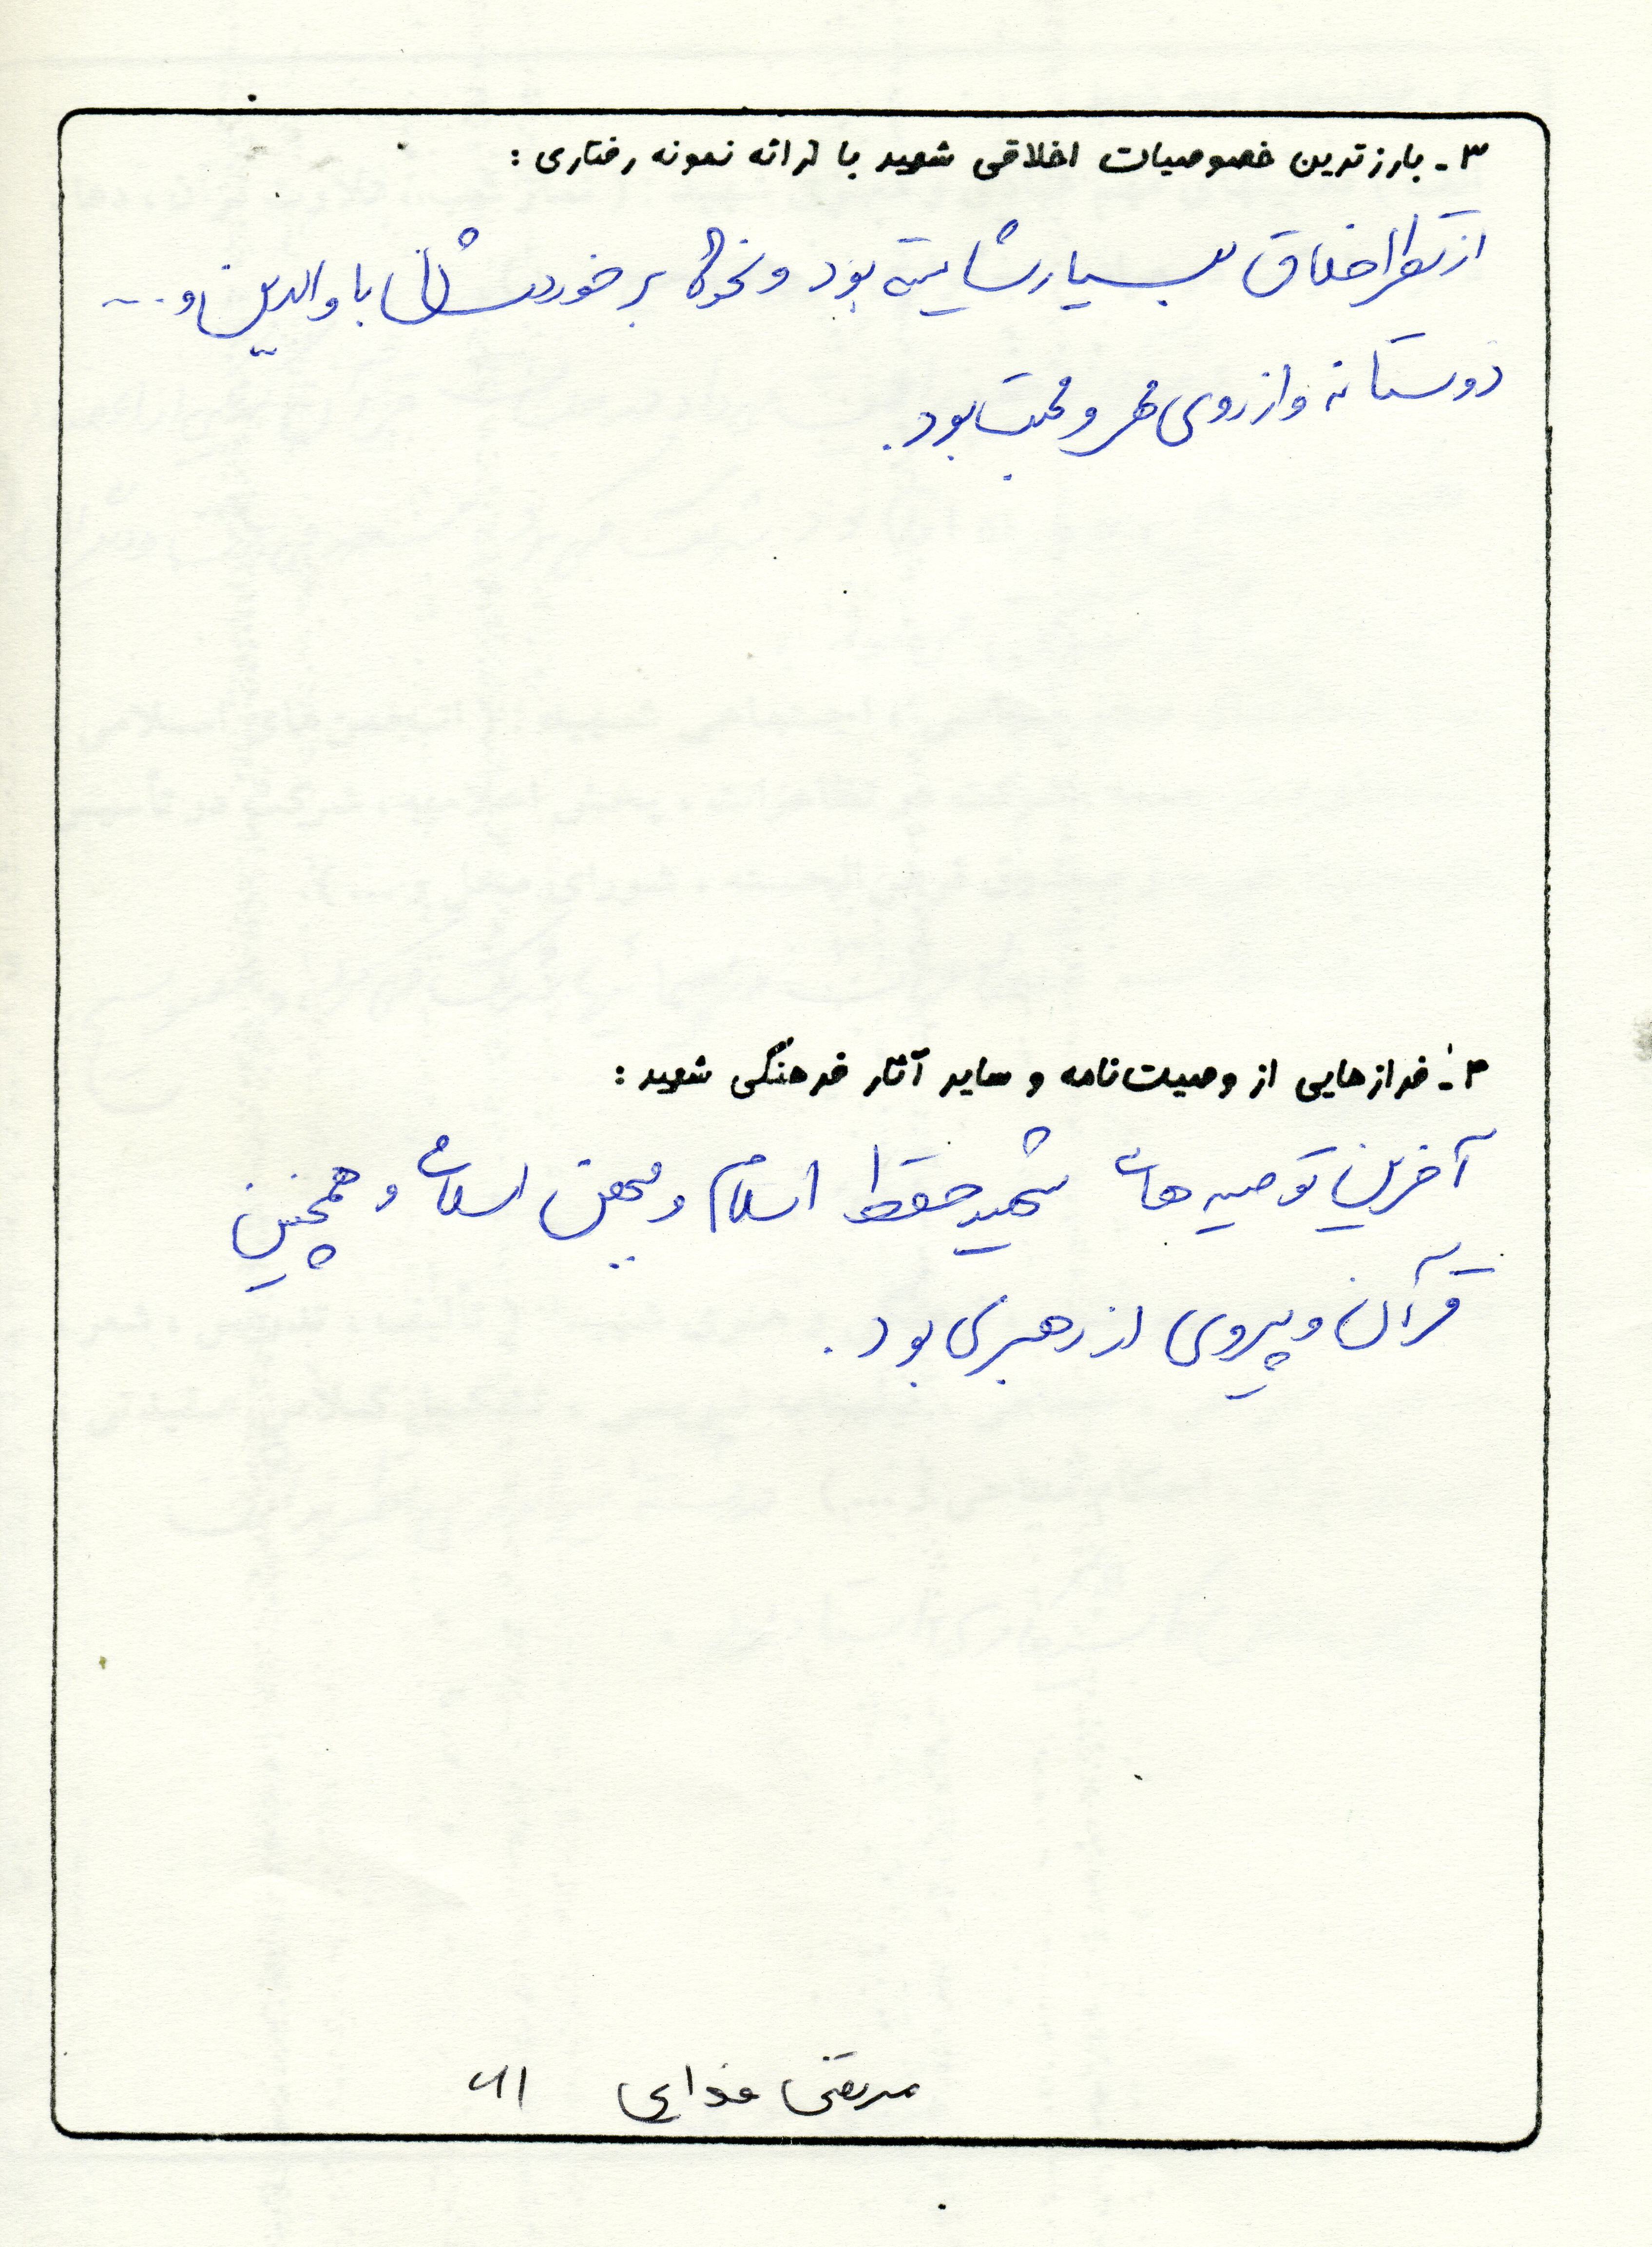 ۳ـ بارزترین خصوصیات اخلاقی شهید با ارائه نمونه رفتاری :
از نظر اخلاق بسیار شایسته بود و نحوهٔ برخوردشان با والدین و ...
دوستانه و از روی مهر و محبت بود .
۴ـ فرازهایی از وصیت‌نامه و سایر آثار فرهنگی شهید :
آخرین توصیه‌های شهید حفظ اسلام و میهن اسلامی و همچنین
قرآن و پیروی از رهبری بود .
مرتضی فدایی